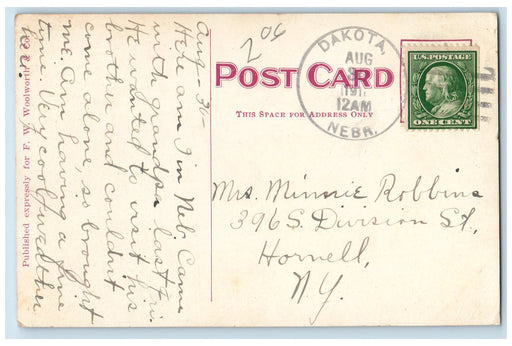 Aug - 30
Here am I in Neb. Came
with grandpa last Fri.
He wanted to visit his
brother and couldn't
come alone, so brought
me. Am having a fine
time. Very cool weather
here.
Published expressly for F. W. Woolworth & Co.
20¢
POST CARD
THIS SPACE FOR ADDRESS ONLY
DAKOTA,
AUG
1911
12AM
NEBR.
U.S. POSTAGE
ONE CENT
Mrs. Minnie Robbins
396 S. Division St.,
Hornell,
N.Y.